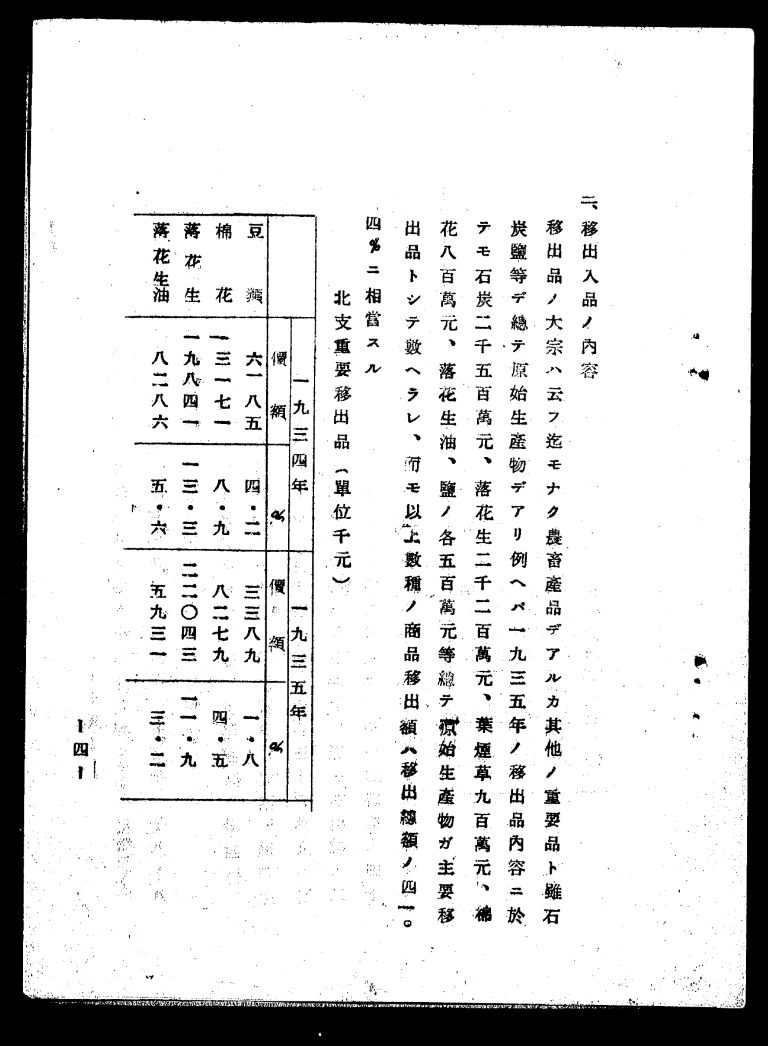 二、移出入品ノ內容
移出品ノ大宗ハ云フ迄モナク農畜產品デアルカ其他ノ重要品ト雖石
炭鹽等デ總テ原始生產物デアリ例ヘバ一九三五年ノ移出品內容ニ於
テモ石炭二千五百萬元、落花生二千二百萬元、葉煙草九百萬元、棉
花八百萬元、落花生油、鹽ノ各五百萬元等總テ原始生產物ガ主要移
出品トシテ數ヘラレ、而モ以上數種ノ商品移出額ハ移出總額ノ四一。
四%ニ相當スル
北支重要移出品(單位千元)
一九三四年 一九三五年
價額 % 價額 %
豆類 六一八五 四・二 三三八九 一・八
棉花 一三一七一 八・九 八二七九 四・五
落花生 一九八四一 一三・三 二二〇四三 一一・九
落花生油 八二八六 五・六 五九三一 三・二
ー四ー